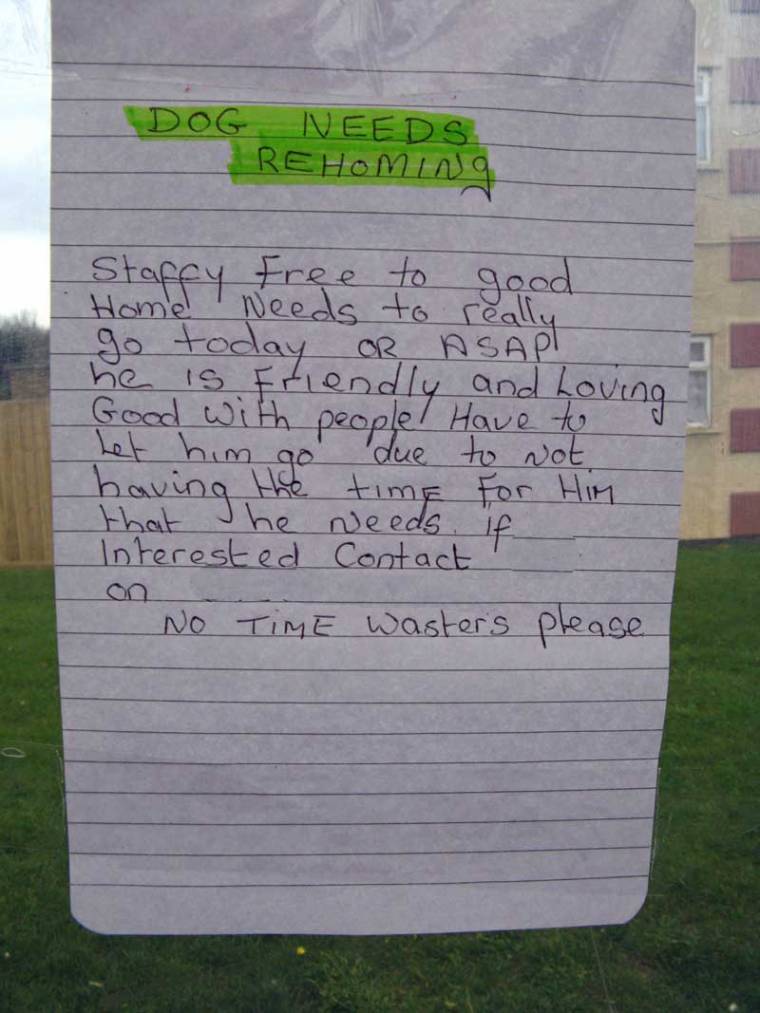 DOG NEEDS
REHOMINg
Staffy Free to good
Home Needs to really
go today OR ASAP
he is Friendly and Loving
Good With people Have to
Let him go due to Not
having the time For HiM
that he Needs. If
Interested Contact
on
NO TiME Wasters please